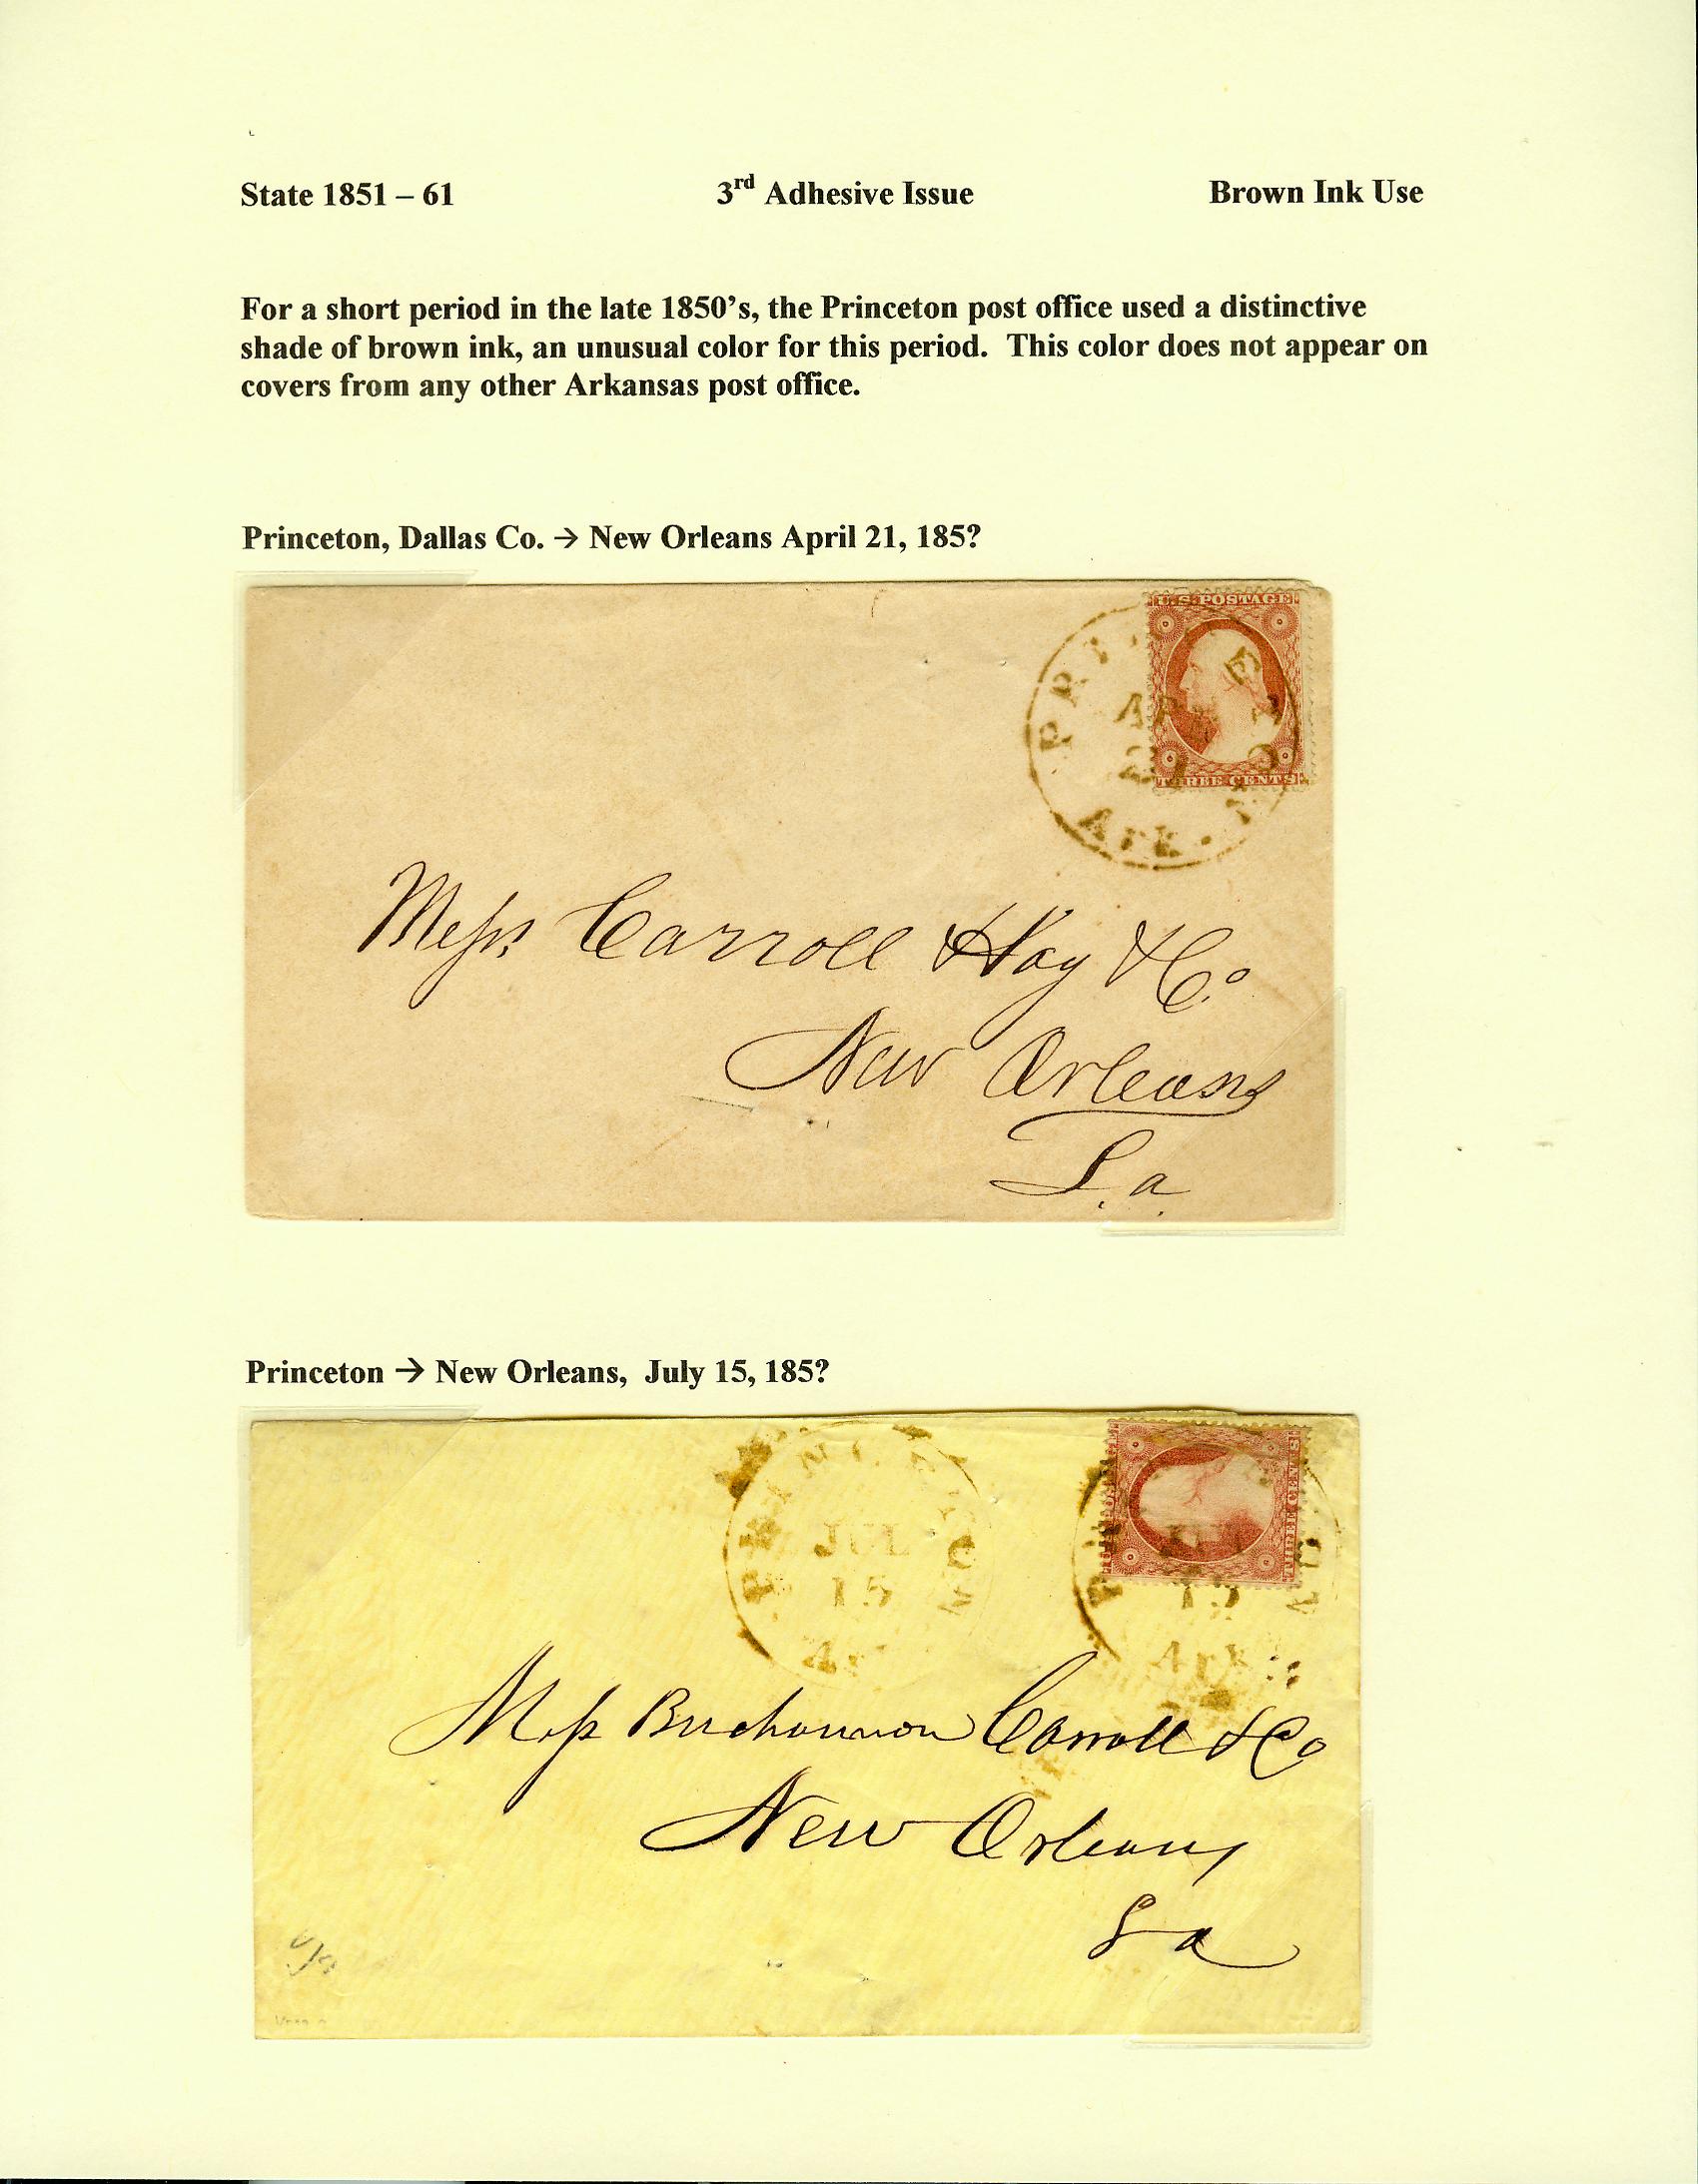 State 1851 – 61 3rd Adhesive Issue Brown Ink Use
For a short period in the late 1850's, the Princeton post office used a distinctive
shade of brown ink, an unusual color for this period. This color does not appear on
covers from any other Arkansas post office.
Princeton, Dallas Co. → New Orleans April 21, 185?
U.S. POSTAGE
THREE CENTS
APR
21
Ark.
Mess Carroll & Hoy & Co
New Orleans
La.
Princeton → New Orleans, July 15, 185?
JUL
15
15
Ark
Mess Buchannon Carroll & Co
New Orleans
La